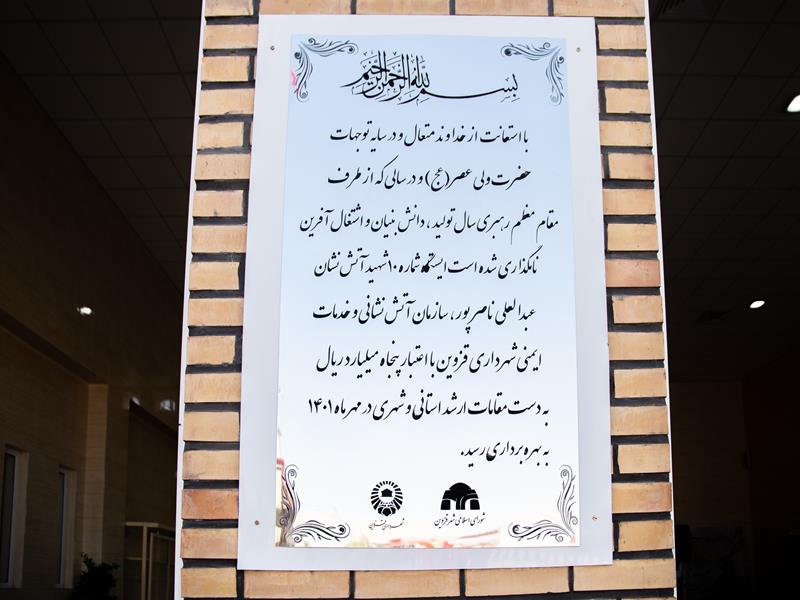 بسم الله الرحمن الرحیم
با استعانت از خداوند متعال و در سایه توجهات
حضرت ولی عصر (عج) و در سالی که از طرف
مقام معظم رهبری سال تولید، دانش بنیان و اشتغال آفرین
نامگذاری شده است ایستگاه شماره ۱۰ شهید آتش نشان
عبدالعلی ناصرپور، سازمان آتش نشانی و خدمات
ایمنی شهرداری قزوین با اعتبار پنجاه میلیارد ریال
به دست مقامات ارشد استانی و شهری در مهرماه ۱۴۰۱
به بهره برداری رسید.
شورای اسلامی شهر قزوین
شهرداری قزوین